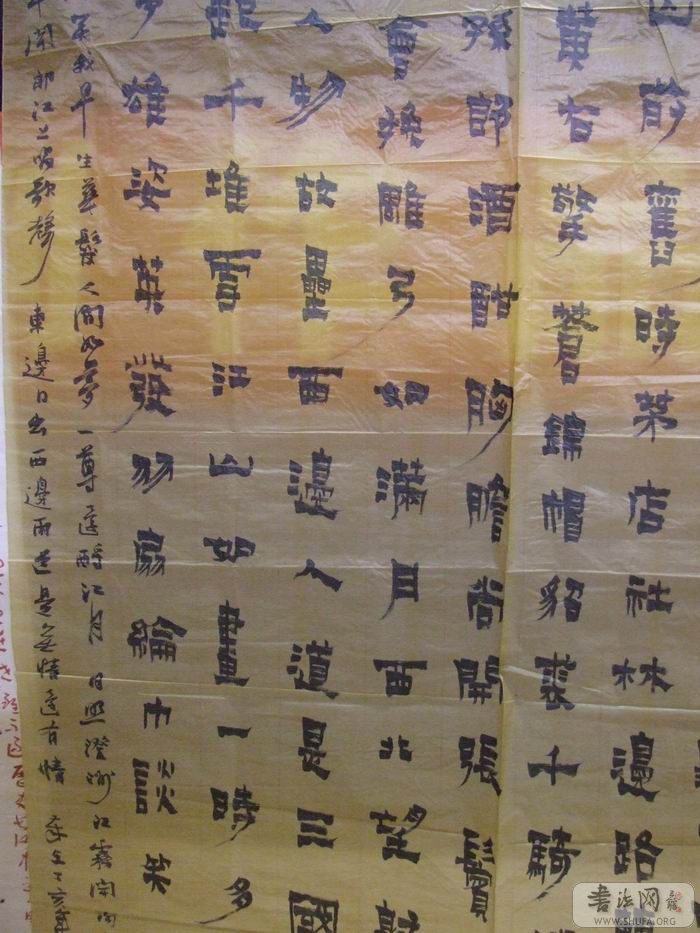 前舊時茅店社林邊路
黃右擎蒼錦帽貂裘千騎
孫郎酒酣胸膽尚開張鬢
會挽雕弓如滿月西北望射
人物故壘西邊人道是三國
起千堆雪江山如畫一時多
雄姿英發羽扇綸巾談笑
我早生華髮人間如夢一尊還酹江月 日照澄洲江霧開
平聞郎江上唱歌聲 東邊日出西邊雨道是無情還有情
書法网
WWW.SHUFA.ORG